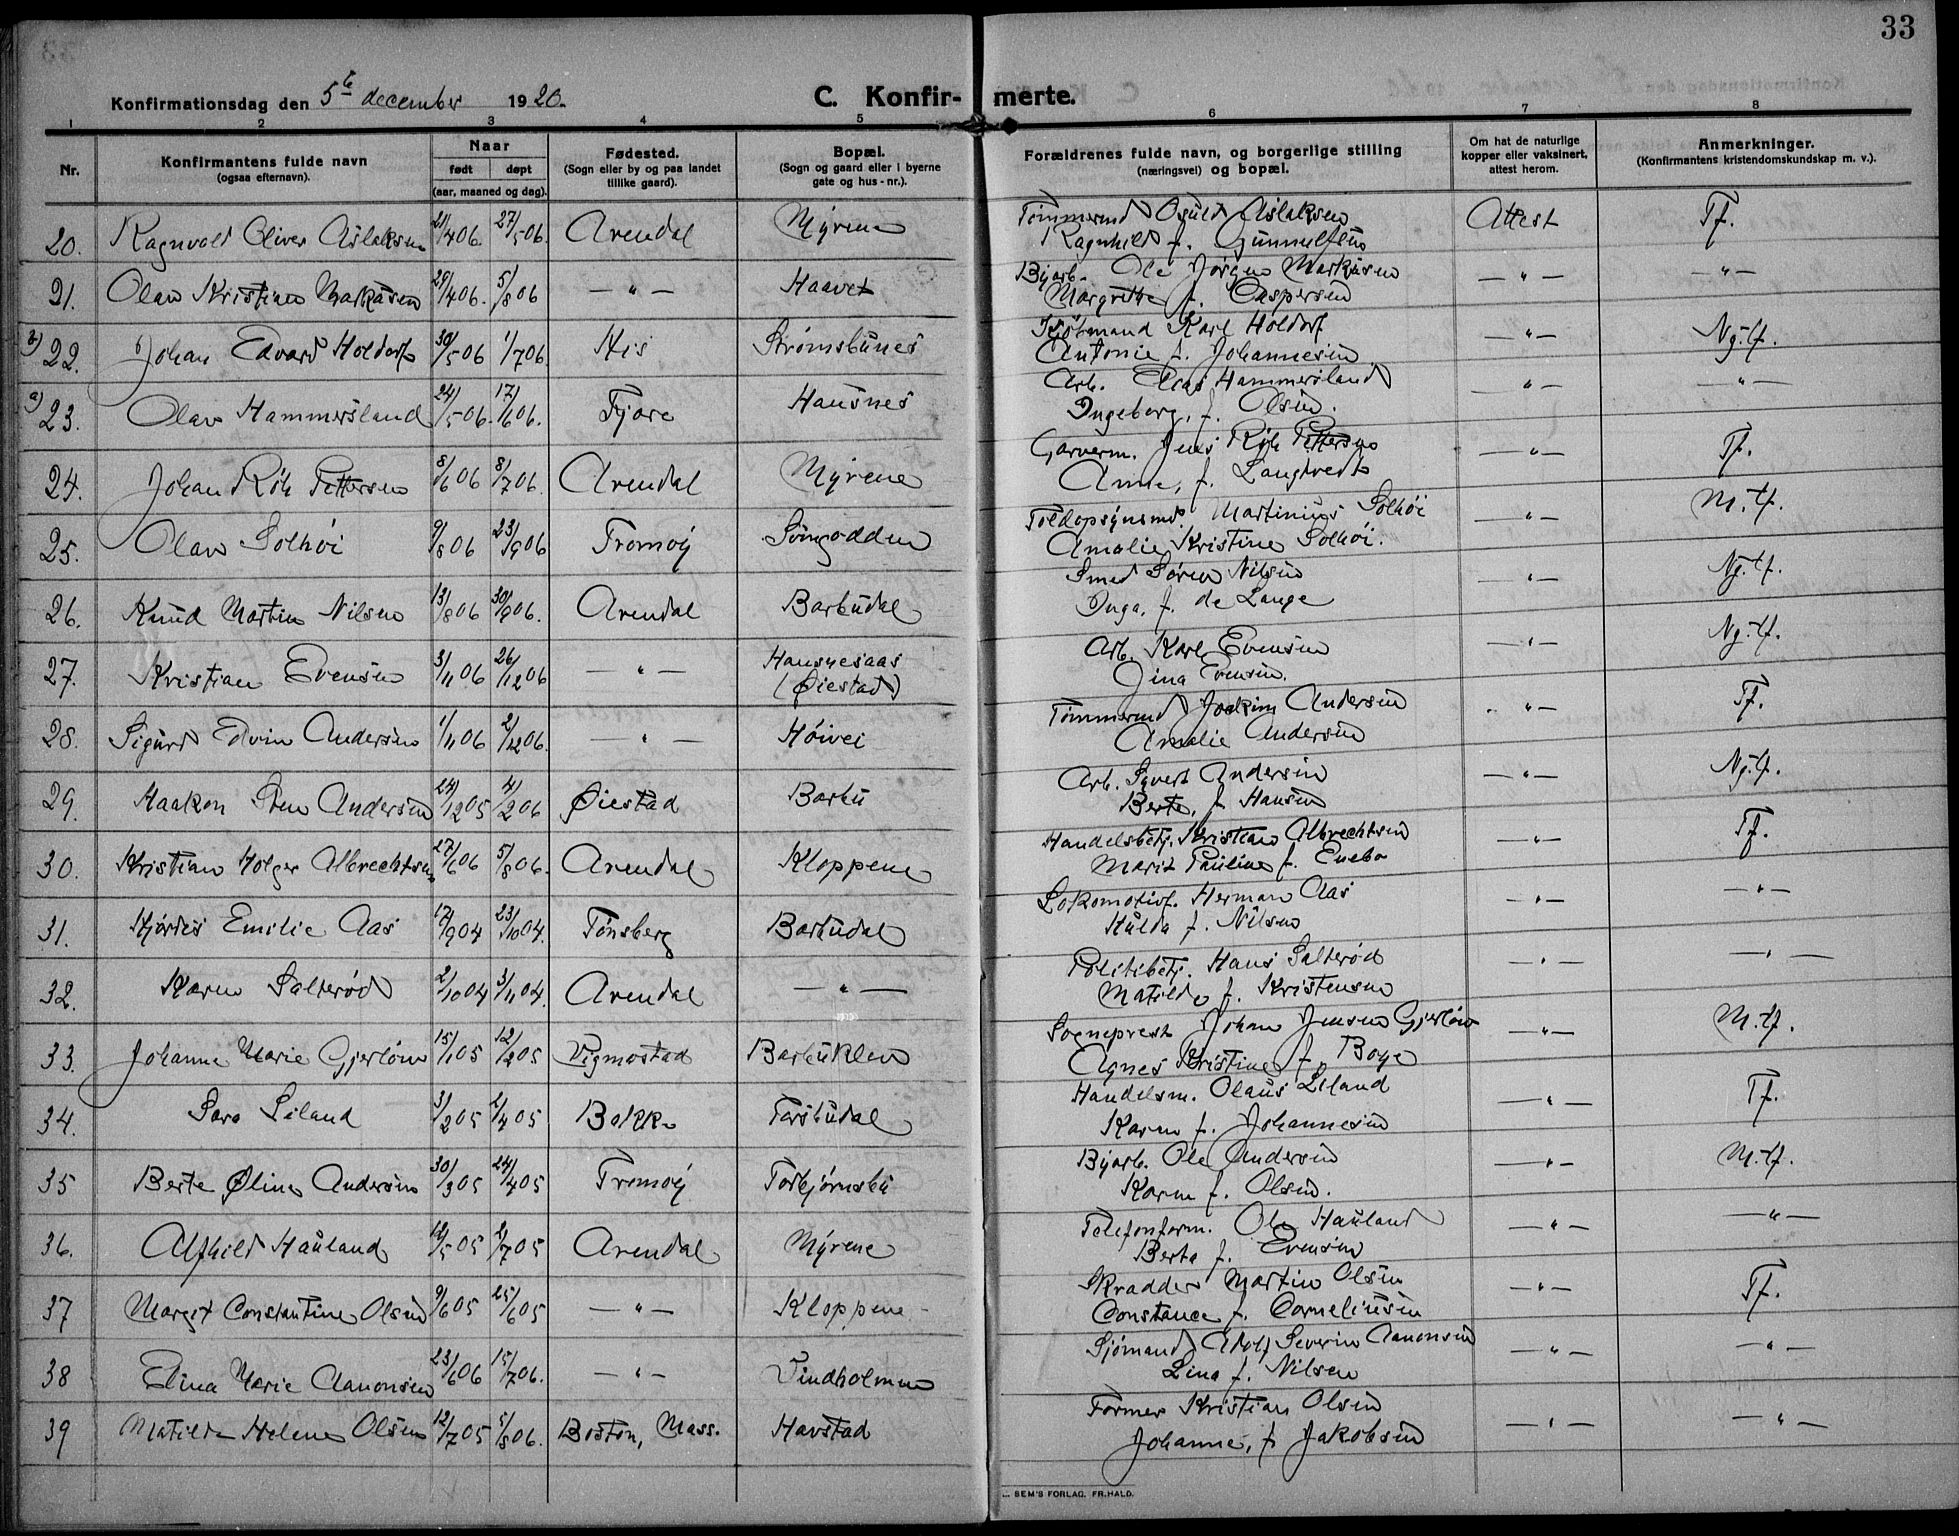 33
Konfirmationsdag den 5te december 1920.
C. Konfir- merte.
1 2 3 4 5 6 7 8
Nr.
Konfirmantens fulde navn
(ogsaa efternavn).
Naar
født døpt
(aar, maaned og dag).
Fødested.
(Sogn eller by og paa landet
tillike gaard).
Bopæl.
(Sogn og gaard eller i byerne
gate og hus-nr.).
Forældrenes fulde navn, og borgerlige stilling
(næringsvei) og bopæl.
Om hat de naturlige
kopper eller vaksinert,
attest herom.
Anmerkninger.
(Konfirmantens kristendomskundskap m. v.).
20. Ragnvald Oliver Aslaksen 21/4 06. 27/5 06. Arendal Myrene Tømmermd Osuld Aslaksen Attest Tf.
Ragnhild f.
21. Olav Kristian Markusen 29/4 06. 5/8 06 — " — Haavet Byarb. Ole Jørgen Markusen — " — — " —
Margrethe f. Caspersen
b) 22. Johan Edvard Holdorf 30/5 06 1/7 06. His Strømsbunes Kjøbmand Karl Holdorf — " — Ng. tf.
Antonie f. Johannesen
a) 23. Olav Hammersland 24/5 06. 17/6 06. Fjære Hausnes Arb. Elias Hammersland — " — — " —
Ingeborg, f. Olsen.
24. Johan Röh Pettersen 8/6 06 8/7 06. Arendal Myrene Garverm. Jens Röh Pettersen — " — Tf.
Anne, f. Langtvedt
25. Olav Solhöi 9/8 06 23/9 06 Tromøy Songeodden Toldopsynsmd. Martinius Solhöi — " — M. tf.
Amalie Kristine Solhöi.
26. Knud Martin Nilsen 13/8 06 30/9 06. Arendal Barbudal Smed Søren Nilsen — " — Ng. tf.
Inga, f. de Lange
27. Kristian Evensen 3/11 06 26/12 06 — " — Hausnesaas Arb. Karl Evensen — " — Ng. tf.
(Øiestad) Gina Evensen.
28. Sigurd Edvin Andersen 1/11 06 2/12 06. — " — Høivei Tømmermd Joakim Andersen — " — Tf.
Amalie Andersen
29. Haakon Sven Andersen 24/12 05 4/2 06 Øiestad Barbu Arb. Syvert Andersen — " — Ng. tf.
Berte, f. Hansen
30. Kristian Holger Albrechtsen 27/6 06 5/8 06. Arendal Kloppene Handelsbetj. Kristian Albrechtsen — " — Tf.
Marit Pauline f. Enebo
31. Hjørdis Emilie Aas 17/9 04 23/10 04. Tønsberg Barbudal Lokomotivf. Herman Aas — " — — " —
Hulda f. Nilsen
32. Karen Salterød 2/10 04 3/11 04. Arendal — " — Politibetj. Hans Salterød — " — — " —
Matilde f. Kristensen
33. Johanne Marie Gjerløw 15/1 05 12/2 05 Vigmostad Barbuklev Sogneprest Johan Jensen Gjerløw — " — M. tf.
Agnes Kristine f. Boye
34. Sara Leland 3/2 05 2/4 05 Bakke Torsbudal Handelsm. Olaus Leland — " — Tf.
Karen f. Johannesen
35 Berte Øline Andersen 30/3 05 24/4 05 Tromøy Torbjørnsbu Byarb. Ole Andersen — " — M. tf.
Karen f. Olsen.
36. Alfhild Hauland 19/5 05 2/7 05 Arendal Myrene Telefonform. Ole Hauland — " — — " —
Berta f. Evensen
37 Margit Constantine Olsen 9/6 05 25/6 05 — " — Kloppene Skrædder Martin Olsen — " — Tf.
Constance f. Corneliusen
38 Elina Marie Aanonsen 23/6 06 15/7 06. — " — Vindholmen Sjømand Adolf Severin Aanonsen — " — — " —
Lina f. Nilsen
39 Matilde Helene Olsen 12/7 05 5/8 06. Boston, Mass. Havstad Former Kristian Olsen — " — — " —
Johanne, f. Jakobsen
SEM'S FORLAG. FR.HALD.